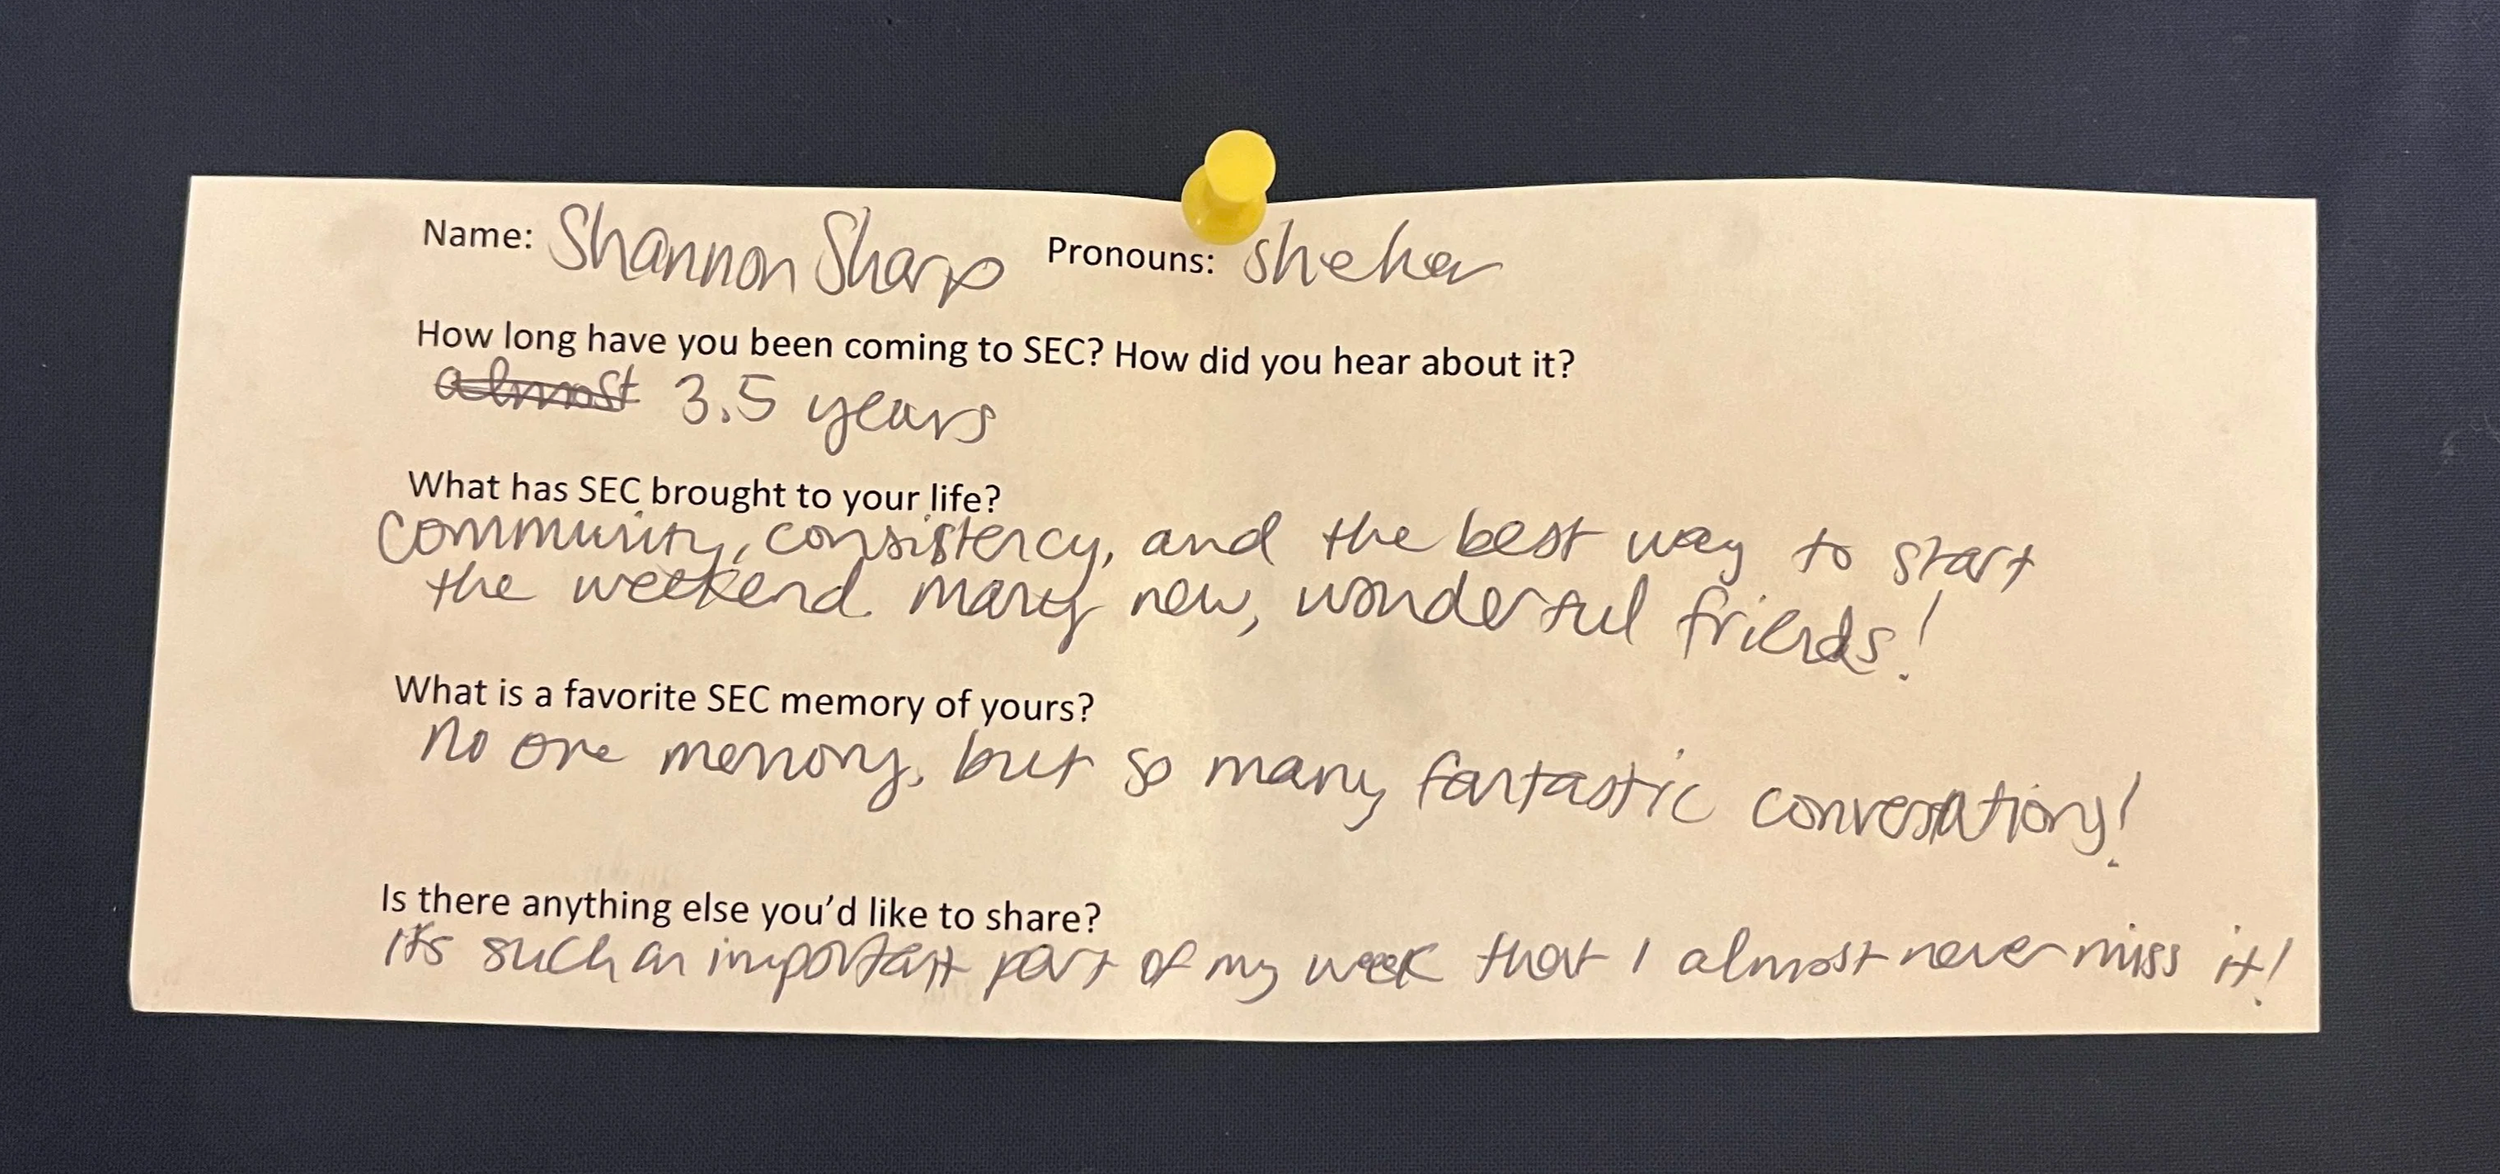 Name: Shannon Sharp Pronouns: sheher
How long have you been coming to SEC? How did you hear about it?
almost 3.5 years
What has SEC brought to your life?
community, consistency, and the best way to start
the weekend. many new, wonderful friends!
What is a favorite SEC memory of yours?
No one memory, but so many fantastic conversations!
Is there anything else you'd like to share?
it's such an important part of my week that I almost never miss it!